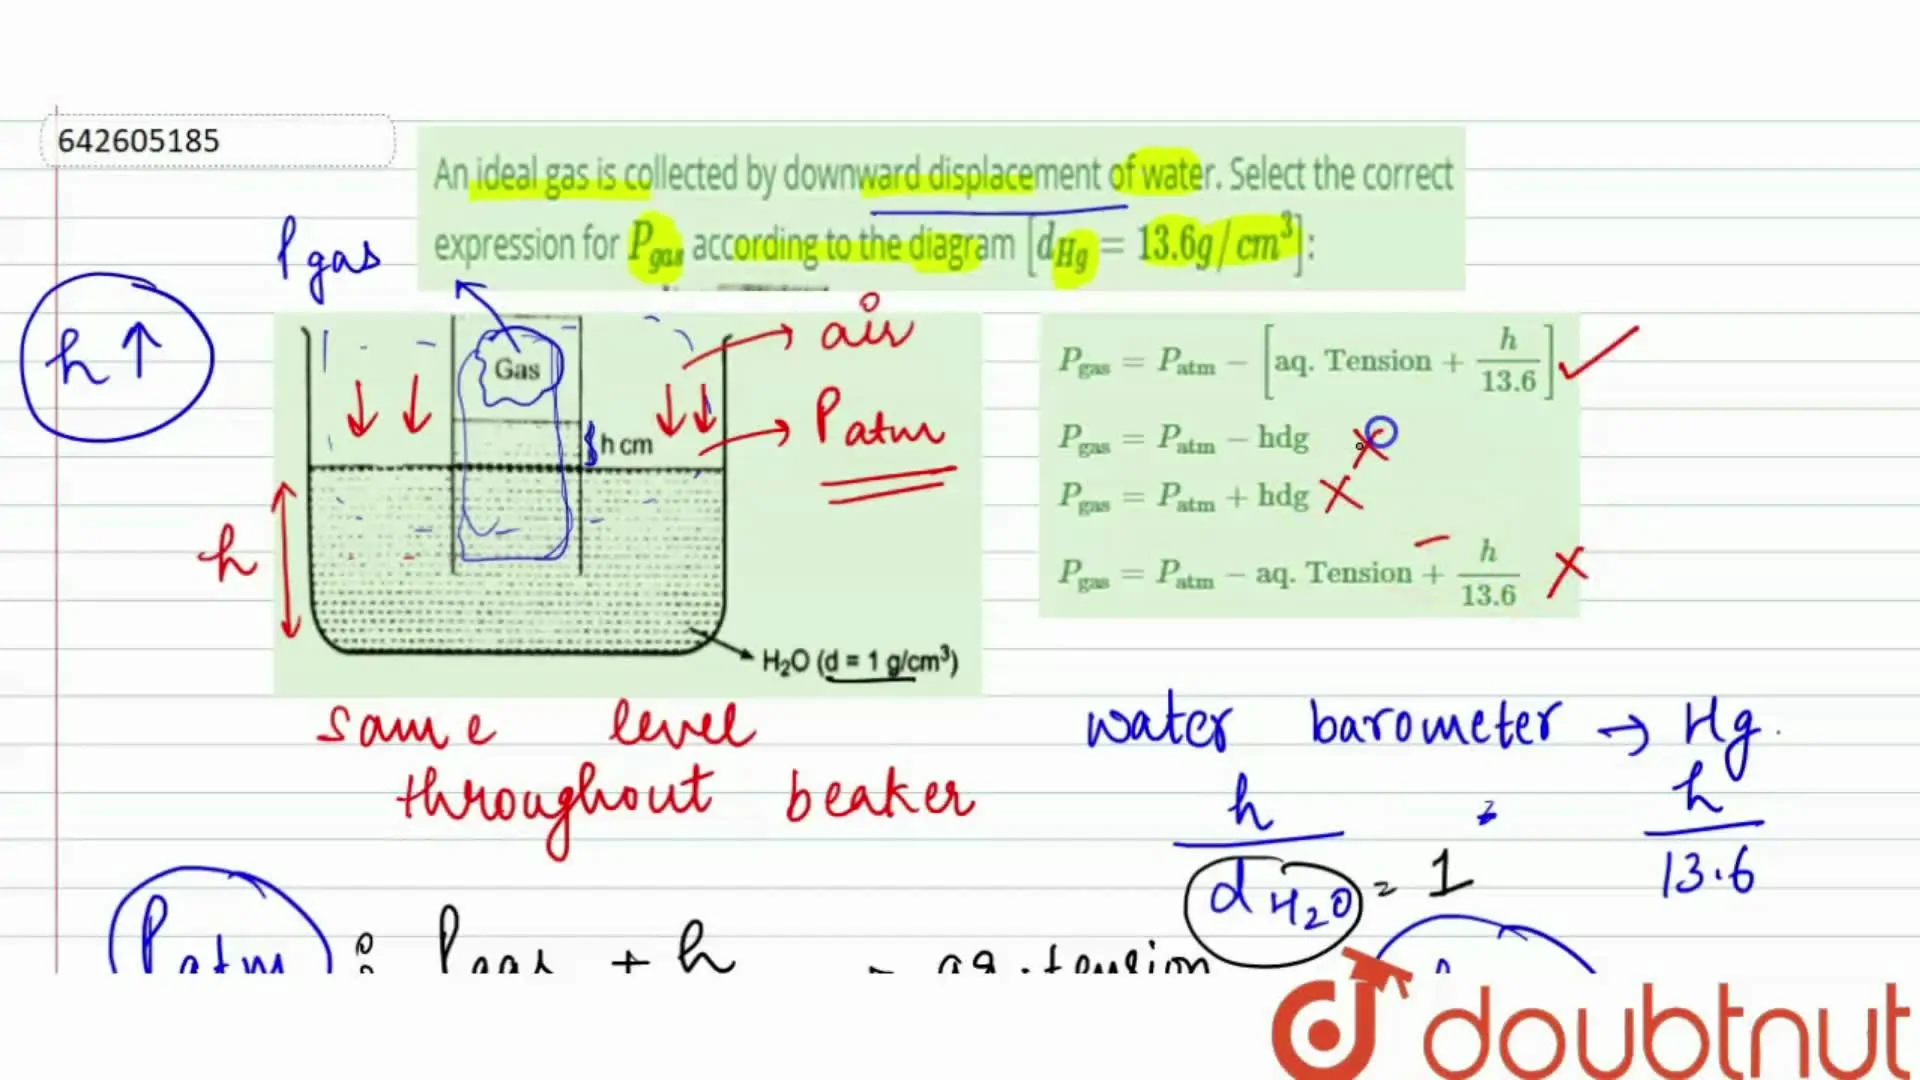 642605185
An ideal gas is collected by downward displacement of water. Select the correct
expression for P_gas according to the diagram [d_Hg = 13.6g/cm³]:
P gas
h ↑
Gas
air
P atm
h cm
h
H₂O (d = 1 g/cm³)
P_gas = P_atm − [aq. Tension + h/13.6]
P_gas = P_atm − hdg
P_gas = P_atm + hdg
P_gas = P_atm − aq. Tension + h/13.6
same level
throughout beaker
water barometer → Hg
h/d H₂O = 1
h/13.6
P atm
P gas + h
aq. tension
doubtnut